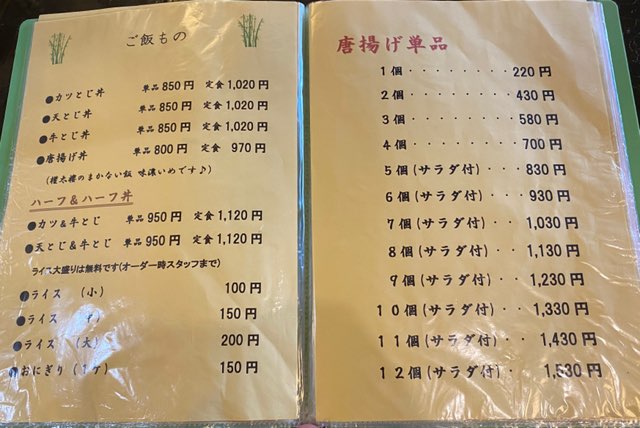 ご飯もの
●カツとじ丼 単品 850 円 定食 1,020 円
●天とじ丼 単品 850 円 定食 1,020 円
●牛とじ丼 単品 850 円 定食 1,020 円
●唐揚げ丼 単品 800 円 定食 970 円
(檀木樓のまかない飯 味濃いめです♪)
ハーフ&ハーフ丼
●カツ&牛とじ 単品 950 円 定食 1,120 円
●天とじ&牛とじ 単品 950 円 定食 1,120 円
ライス大盛りは無料です(オーダー時スタッフまで)
●ライス (小) 100 円
●ライス 150 円
●ライス (大) 200 円
●おにぎり (1ケ) 150 円
唐揚げ単品
1個・・・・・・・・220 円
2個・・・・・・・・430 円
3個・・・・・・・・580 円
4個・・・・・・・・700 円
5個(サラダ付)・・・830 円
6個(サラダ付)・・・930 円
7個(サラダ付)・・1,030 円
8個(サラダ付)・・1,130 円
9個(サラダ付)・・1,230 円
10個(サラダ付)・・1,330 円
11個(サラダ付)・・1,430 円
12個(サラダ付)・・1,530 円